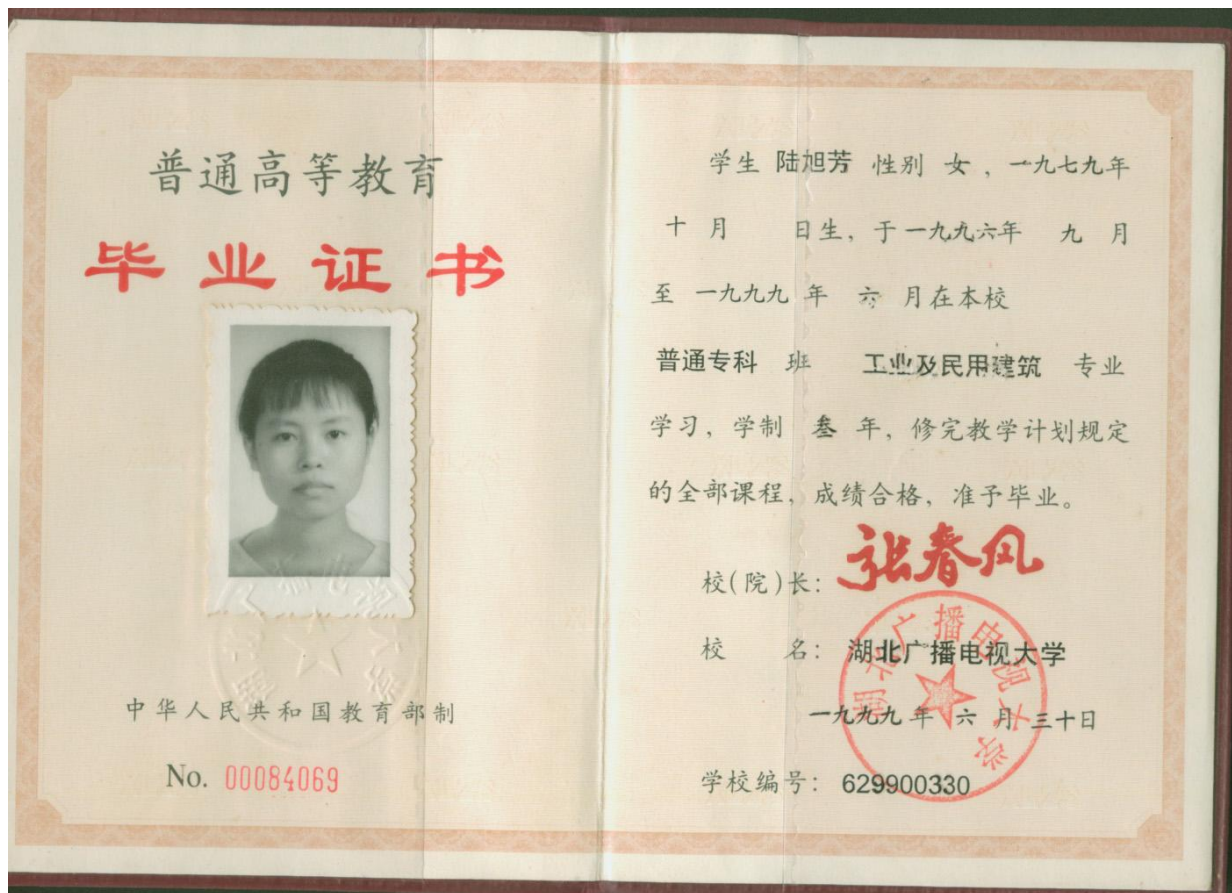 普通高等教育
毕业证书
中华人民共和国教育部制
No. 00084069
学生 陆旭芳 性别 女，一九七九年
十 月 日生，于一九九六年 九 月
至 一九九九 年 六 月在本校
普通专科 班 工业及民用建筑 专业
学习，学制 叁 年，修完教学计划规定
的全部课程，成绩合格，准予毕业。
校(院)长：张春风
校 名：湖北广播电视大学
一九九九 年 六 月 三十日
学校编号：629900330
湖北广播电视大学